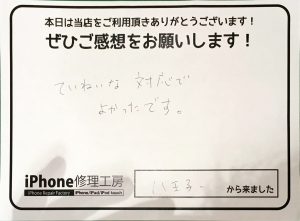 本日は当店をご利用頂きありがとうございます!
ぜひご感想をお願いします!
ていねいな 対応で
よかったです。
iPhone修理工房
iPhone Repair Factory iPhone/iPad/iPod touch
八王子 から来ました